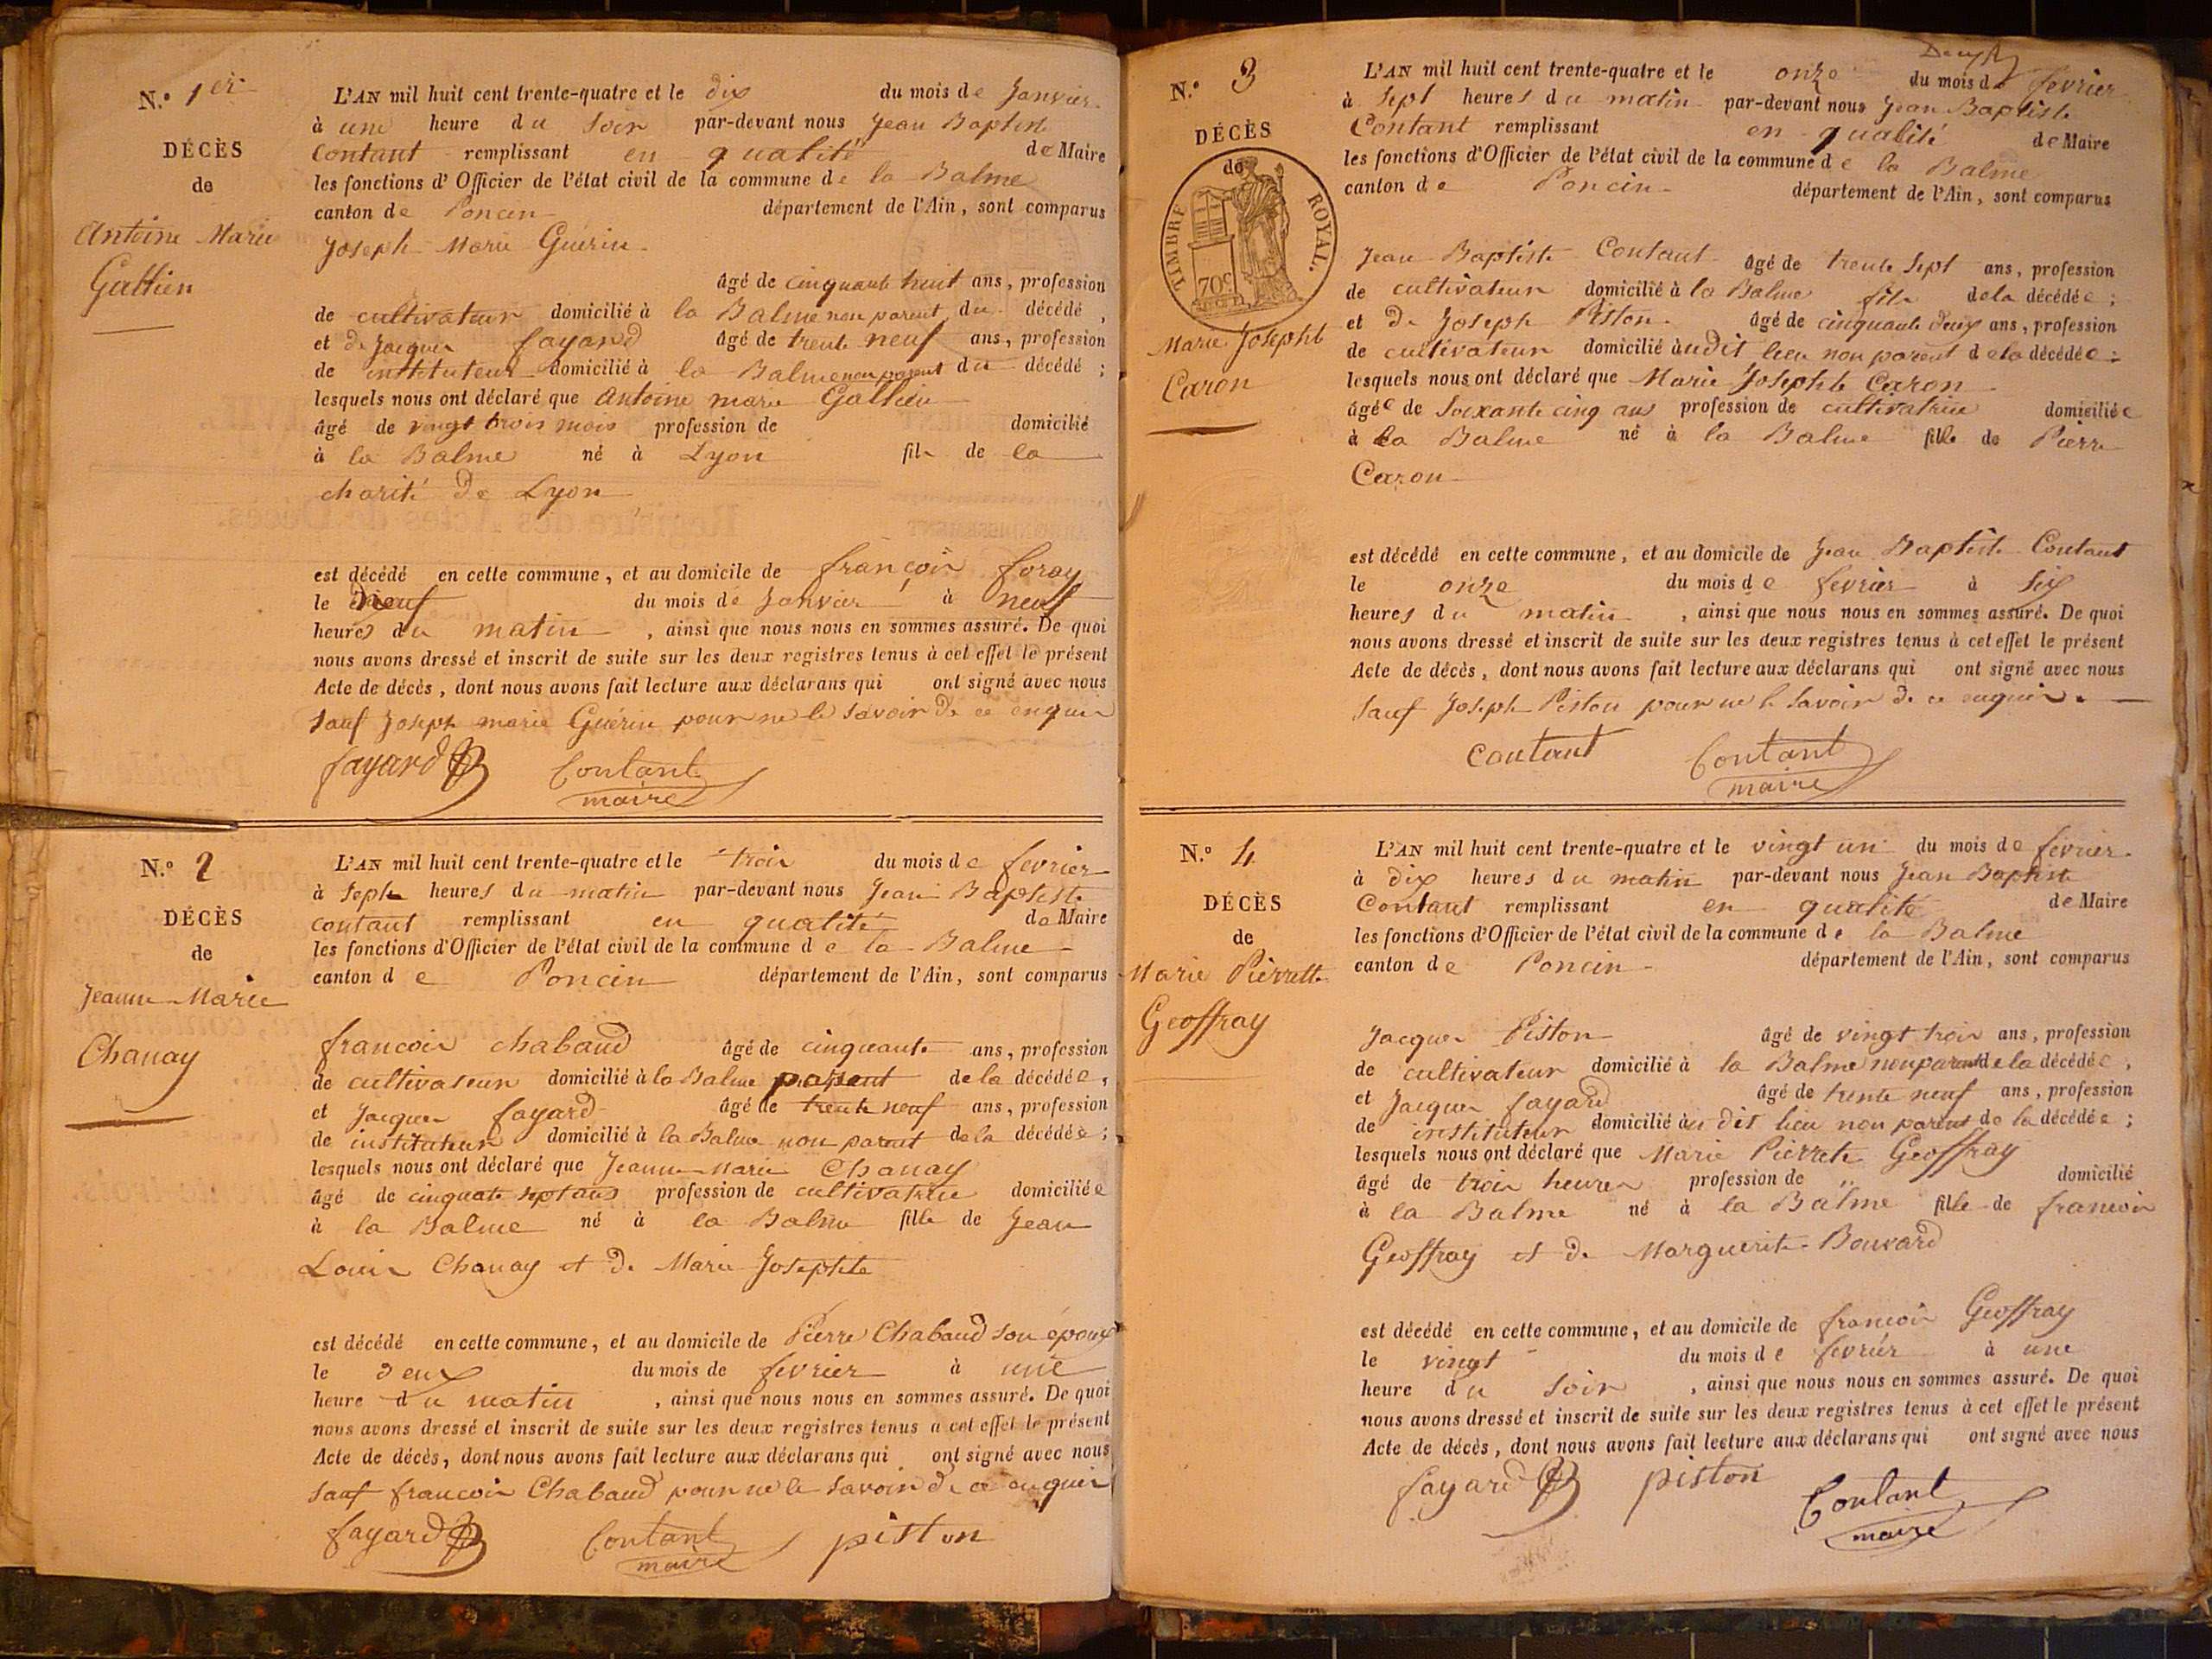 N.º 1er
DÉCÈS
de
Antoine Marie
Gallien
L'AN mil huit cent trente-quatre et le dix du mois de Janvier
à une heure du soir par-devant nous Jean Baptiste
Contant remplissant en qualité de Maire
les fonctions d'Officier de l'état civil de la commune de la Balme
canton de Poncin département de l'Ain, sont comparus
Joseph Marie Guérin
âgé de cinquante huit ans, profession
de cultivateur domicilié à la Balme non parent du décédé,
et de Jacques fayard âgé de trente neuf ans, profession
de instituteur domicilié à la Balme non parent du décédé;
lesquels nous ont déclaré que Antoine marie Gallien
âgé de vingt trois mois profession de domicilié
à la Balme né à Lyon fils de la
charité de Lyon
est décédé en cette commune, et au domicile de françois foray
le neuf du mois de Janvier à neuf
heures du matin, ainsi que nous nous en sommes assuré. De quoi
nous avons dressé et inscrit de suite sur les deux registres tenus à cet effet le présent
Acte de décès, dont nous avons fait lecture aux déclarans qui ont signé avec nous
sauf Joseph marie Guérin pour ne le savoir de ce enquis
fayard Contant
maire
N.º 2
DÉCÈS
de
Jeanne Marie
Chanay
L'AN mil huit cent trente-quatre et le trois du mois de fevrier
à sept heures du matin par-devant nous Jean Baptiste
contant remplissant en qualité de Maire
les fonctions d'Officier de l'état civil de la commune de la Balme
canton de Poncin département de l'Ain, sont comparus
francois chabaud âgé de cinquante ans, profession
de cultivateur domicilié à la Balme parent de la décédée,
et Jacques fayard âgé de trente neuf ans, profession
de instituteur domicilié à la Balme non parent de la décédée;
lesquels nous ont déclaré que Jeanne Marie Chanay
âgé de cinquate sept ans profession de cultivatrice domiciliée
à la Balme né à la Balme fille de Jean
Louis Chanay et de Marie Josephte
est décédé en cette commune, et au domicile de Pierre Chabaud son époux
le deux du mois de fevrier à une
heure du matin, ainsi que nous nous en sommes assuré. De quoi
nous avons dressé et inscrit de suite sur les deux registres tenus à cet effet le présent
Acte de décès, dont nous avons fait lecture aux déclarans qui ont signé avec nous
sauf francois Chabaud pour ne le savoir de ce enquis
fayard Contant piston
maire
N.º 3
DÉCÈS
de
TIMBRE ROYAL.
70c
Marie Josephte
Caron
L'AN mil huit cent trente-quatre et le onze du mois de fevrier
à sept heures du matin par-devant nous Jean Baptiste
Contant remplissant en qualité de Maire
les fonctions d'Officier de l'état civil de la commune de la Balme
canton de Poncin département de l'Ain, sont comparus
Jean Baptiste Contant âgé de trente sept ans, profession
de cultivateur domicilié à la Balme fils de la décédée;
et de Joseph Piston âgé de cinquante deux ans, profession
de cultivateur domicilié audit lieu non parent de la décédée;
lesquels nous ont déclaré que Marie Josephte Caron
âgée de soixante cinq ans profession de cultivatrice domiciliée
à la Balme né à la Balme fille de Pierre
Caron
est décédé en cette commune, et au domicile de Jean Baptiste Contant
le onze du mois de fevrier à six
heures du matin, ainsi que nous nous en sommes assuré. De quoi
nous avons dressé et inscrit de suite sur les deux registres tenus à cet effet le présent
Acte de décès, dont nous avons fait lecture aux déclarans qui ont signé avec nous
sauf Joseph Piston pour ne le savoir de ce enquis.
contant Contant
maire
N.º 4
DÉCÈS
de
Marie Pierrette
Geoffray
L'AN mil huit cent trente-quatre et le vingt un du mois de fevrier
à dix heures du matin par-devant nous Jean Baptiste
Contant remplissant en qualité de Maire
les fonctions d'Officier de l'état civil de la commune de la Balme
canton de Poncin département de l'Ain, sont comparus
Jacques Piston âgé de vingt trois ans, profession
de cultivateur domicilié à la Balme non parent de la décédée,
et Jacques fayard âgé de trente neuf ans, profession
de instituteur domicilié au dit lieu non parent de la décédée;
lesquels nous ont déclaré que Marie Pierrete Geoffray
âgé de trois heures profession de domicilié
à la Balme né à la Balme fille de francois
Geoffray et de Marguerite Bouvard
est décédé en cette commune, et au domicile de francois Geoffray
le vingt du mois de fevrier à une
heure du soir, ainsi que nous nous en sommes assuré. De quoi
nous avons dressé et inscrit de suite sur les deux registres tenus à cet effet le présent
Acte de décès, dont nous avons fait lecture aux déclarans qui ont signé avec nous
fayard piston Contant
maire